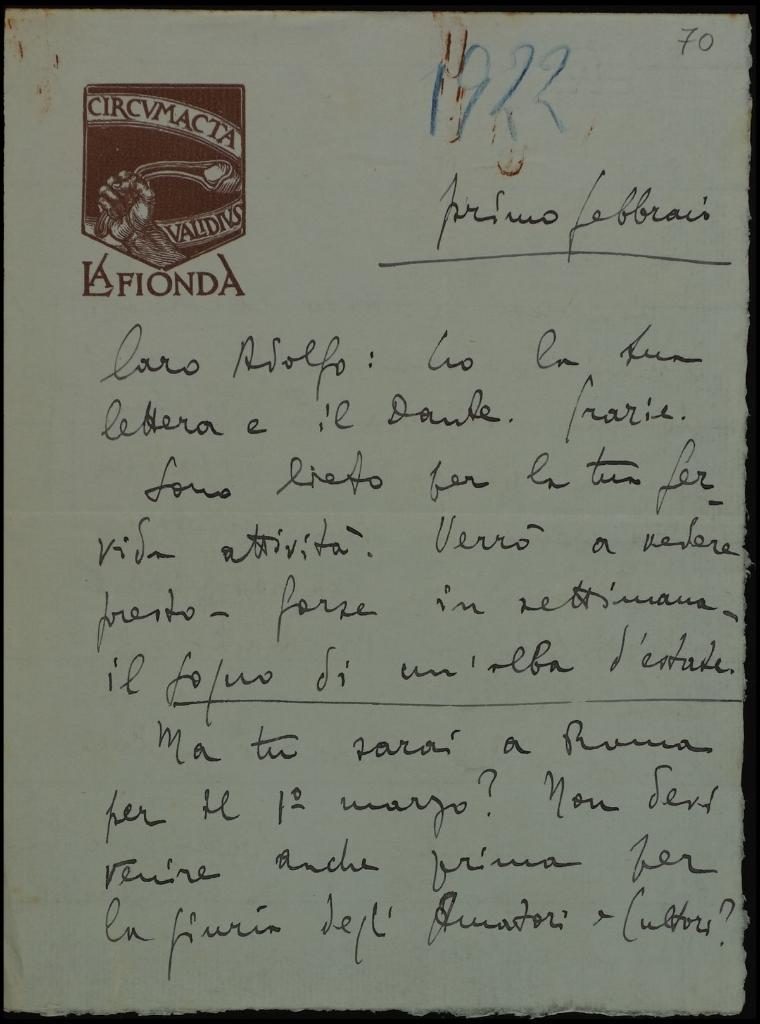 70
1922
CIRCVMACTA
VALIDIVS
LA FIONDA
primo febbraio
Caro Adolfo: ho la tua
lettera e il Dante. Grazie.
Sono lieto per la tua fer-
vida attività. Verrò a vedere
presto - forse in settimana -
il sogno di un'alba d'estate.
Ma tu sarai a Roma
per il 1º marzo? Non devi
venire anche prima per
la giuria degli Amatori e Cultori?